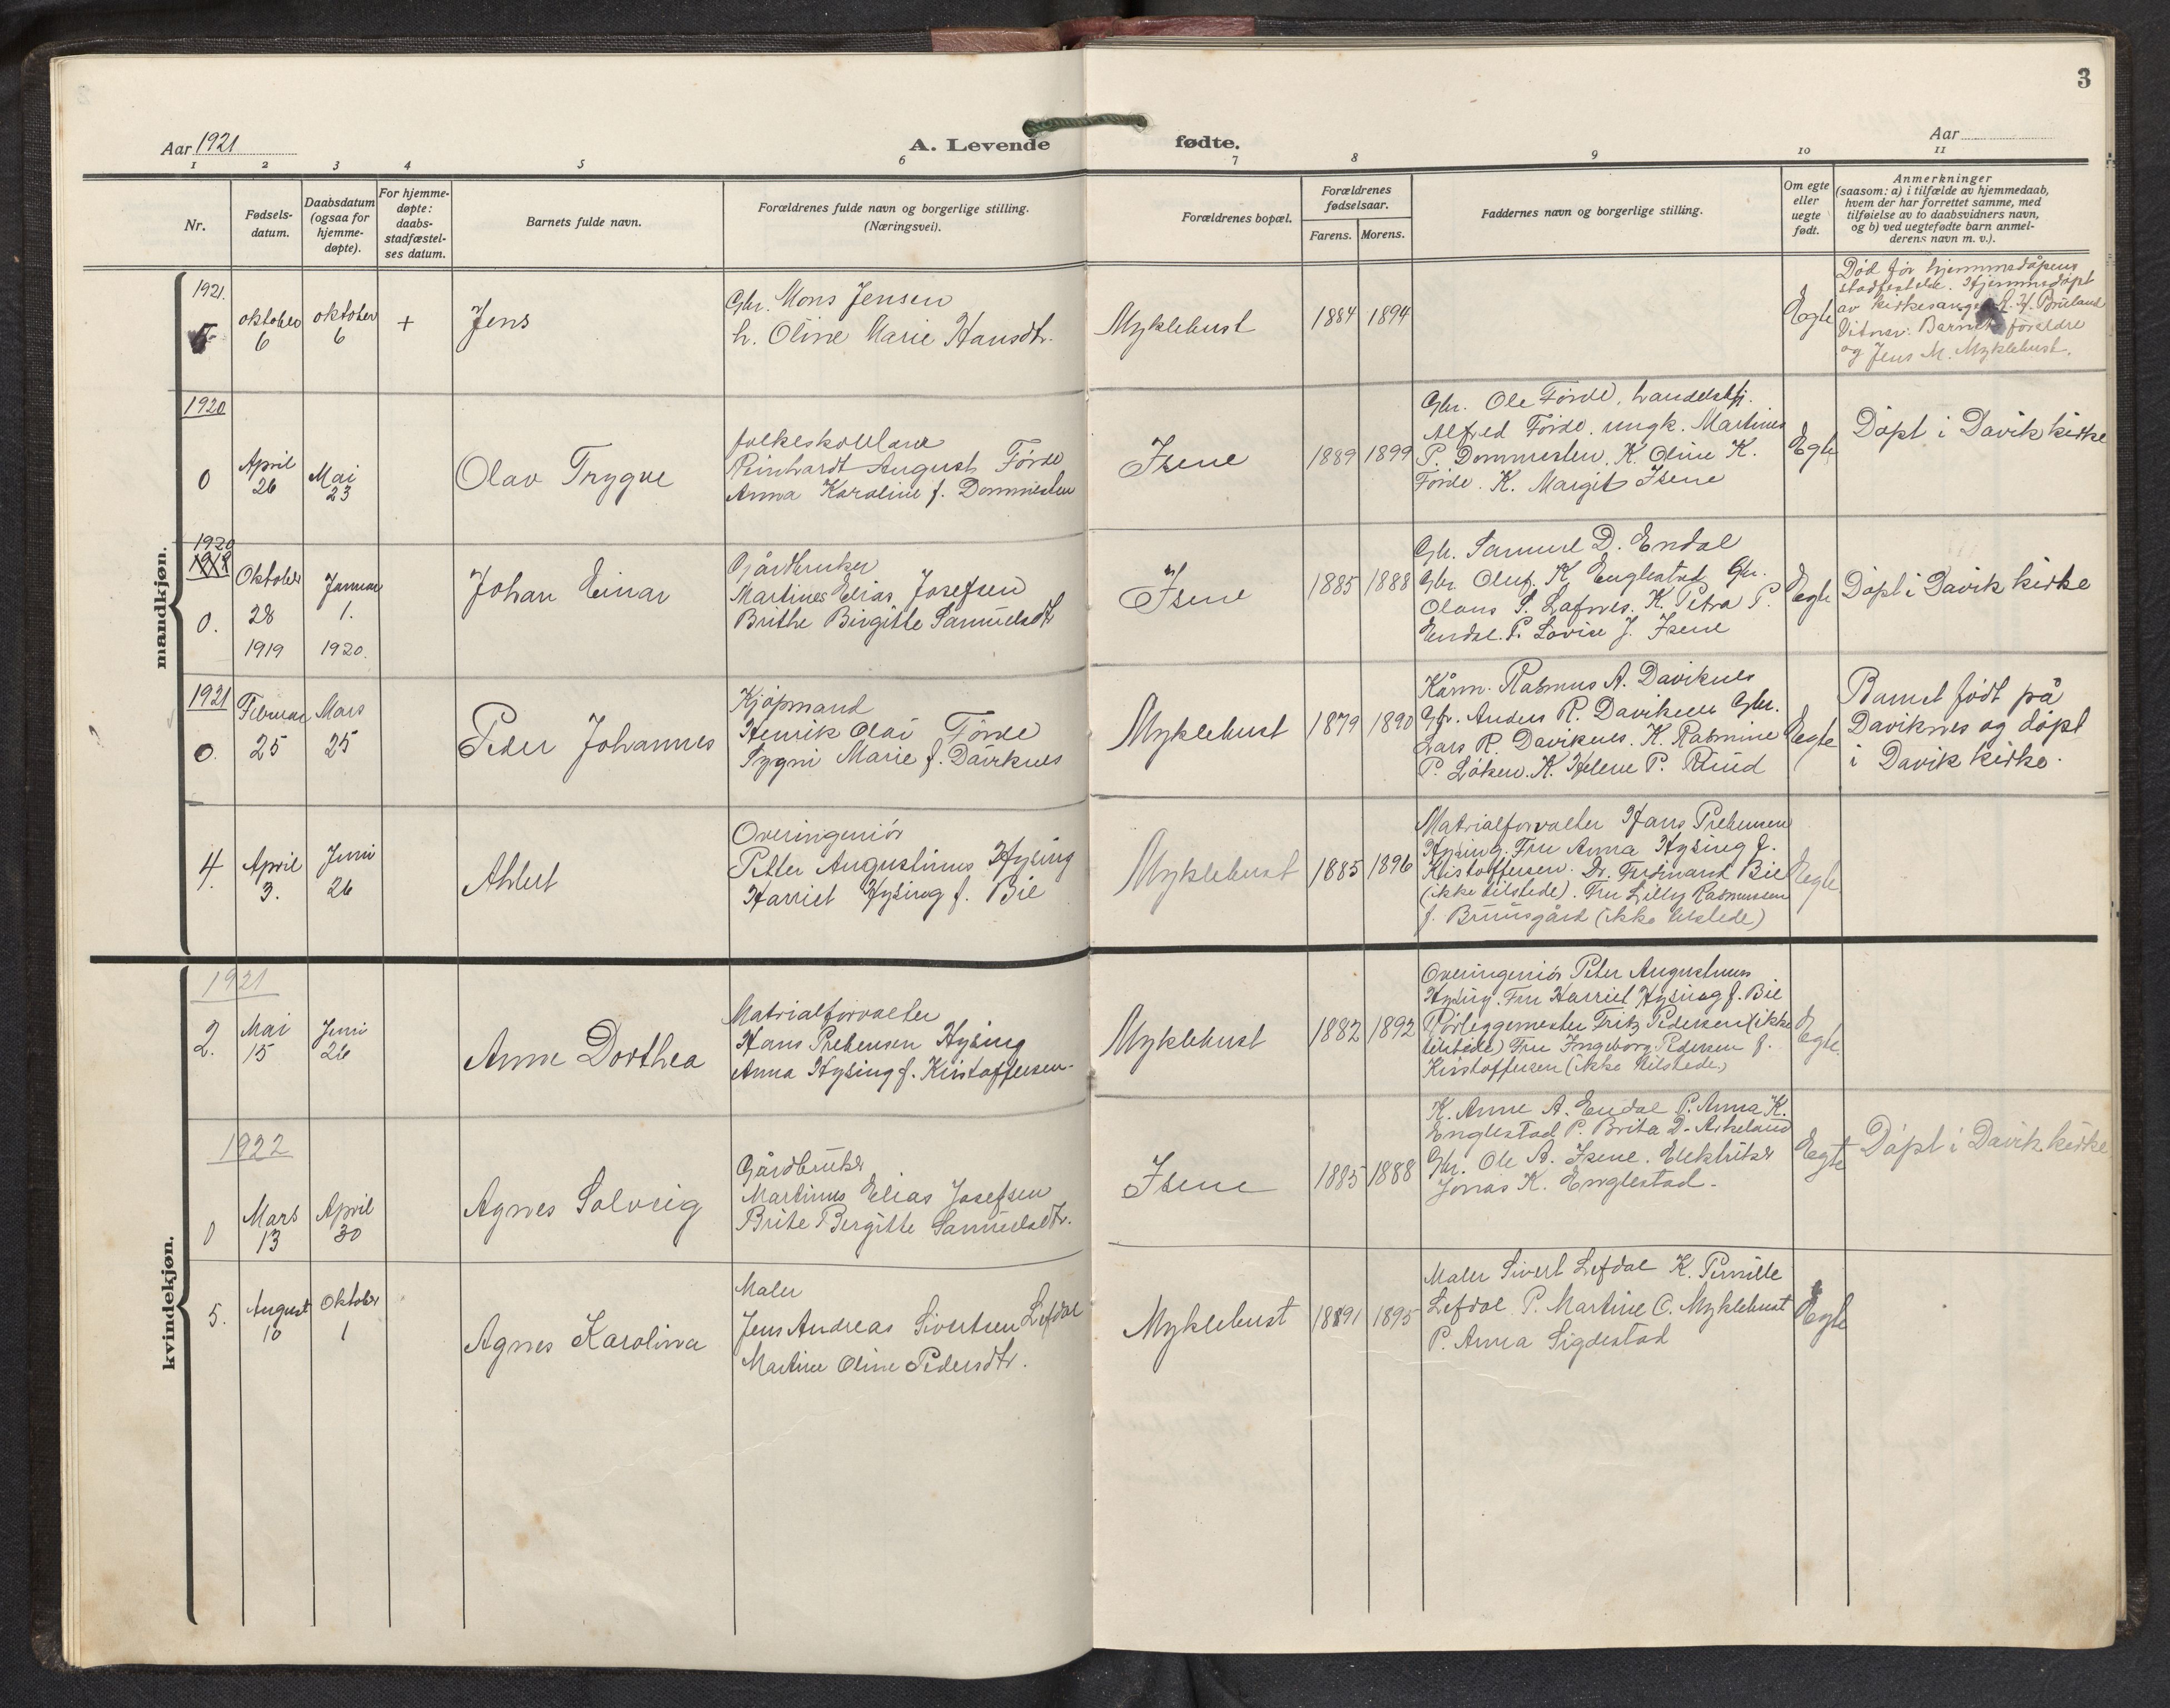 3
Aar 1921
A. Levende fødte.
Aar
1 2 3 4 5 6 7 8 9 10 11
Nr.
Fødsels-
datum.
Daabsdatum
(ogsaa for
hjemme-
døpte).
For hjemme-
døpte:
daabs-
stadfæstel-
ses datum.
Barnets fulde navn.
Forældrenes fulde navn og borgerlige stilling.
(Næringsvei).
Forældrenes bopæl.
Forældrenes
fødselsaar.
Farens. Morens.
Faddernes navn og borgerlige stilling.
Om egte
eller
uegte
født.
Anmerkninger
(saasom: a) i tilfælde av hjemmedaab,
hvem der har forrettet samme, med
tilføielse av to daabsvidners navn,
og b) ved uegtefødte barn anmel-
derens navn m. v.).
mandkjøn.
1921.
oktober
6
oktober
6
+
Jens
Gbr. Mons Jensen
h. Oline Marie Hansdtr.
Myklebust
1884 1894
Egte
Död för hjemmedåpens
stadfestelse. Hjemmedöpt
av kirkesanger
Vitner: Barnets foreldre
og Jens M. Myklebust.
1920
0
April
26
Mai
23
Olav Trygve
folkeskollærer
Reinhardt August Förde
Anna Karoline f. Dommesten
Isene
1889 1899
Gbr. Ole Förde, handelsbtj.
Alfred Förde, ungk. Martines
P. Dommesten. K. Oline K.
Förde. K. Margit Isene
Egte
Döpt i Davik kirke
1920
1919
0.
Oktober
28
1919
Januar
1.
1920.
Johan Einar
Gårdbruker
Martines Elias Josefsen
Brithe Birgitte Samuelsdtr
Isene
1885 1888
Gbr. Samuel D. Endal
Gbr. Oluf. K. Englestad Gbr.
Olaus S. Lefnes. K. Petra P.
Endal. P. Lovise J. Isene
Egte
Döpt i Davik kirke
1921
0.
Februar
25
Mars
25
Peder Johannes
Kjöpmand
Henrik Olai Förde
Sygni Marie f. Daviknes
Myklebust
1879 1890
Kårm. Rasmus A. Daviknes
Gbr. Anders R. Daviknes Gbr.
Lars R. Daviknes. K. Rasmine
P. Löken. K. Helene P. Riud
Egte
Barnet födt på
Daviknes og döpt
i Davik kirke.
4.
April
3.
Juni
26
Ahlert
Overingeniör
Petter Augustinus Hysing
Harriet Hysing f. Bie
Myklebust
1885 1896
Matrialforvalter Hans Prebensen
Hysing. Fru Anna Hysing f.
Kristoffersen. Dr. Ferdinand Bie
(ikke tilstede). Fru Lilly Rasmussen
f. Bruusgård (ikke tilstede)
Egte
kvindekjøn.
1921
2.
Mai
15
Juni
26
Anne Dorthea
Matrialforvalter
Hans Prebensen Hysing
Anna Hysing f. Kristoffersen.
Myklebust
1882 1892
Overingeniör Peter Augustinus
Hysing. Fru Harriet Hysing f. Bie
Rörleggemester Fritz Pedersen (ikke
tilstede) Fru Ingeborg Pedersen f.
Kristoffersen (ikke tilstede)
Egte.
1922
0
Mars
13
April
30
Agnes Solveig
Gårdbruker
Martinus Elias Josefsen
Brite Bergitte Samuelsdtr.
Isene
1885 1888
K. Anne A. Endal P. Anna K.
Englestad P. Brita D. Askeland
Gbr. Ole A. Isene. Elektriker
Jonas K. Englestad.
Egte
Döpt i Davik kirke
5.
August
10
Oktober
1
Agnes Karolina
Maler
Jens Andreas Sivertsen Lefdal
Martine Oline Pedersdtr.
Myklebust
1891 1895
Maler Sivert Lefdal K. Pernille
Lefdal P. Martine C. Myklebust
P. Anna Sigdestad
Egte